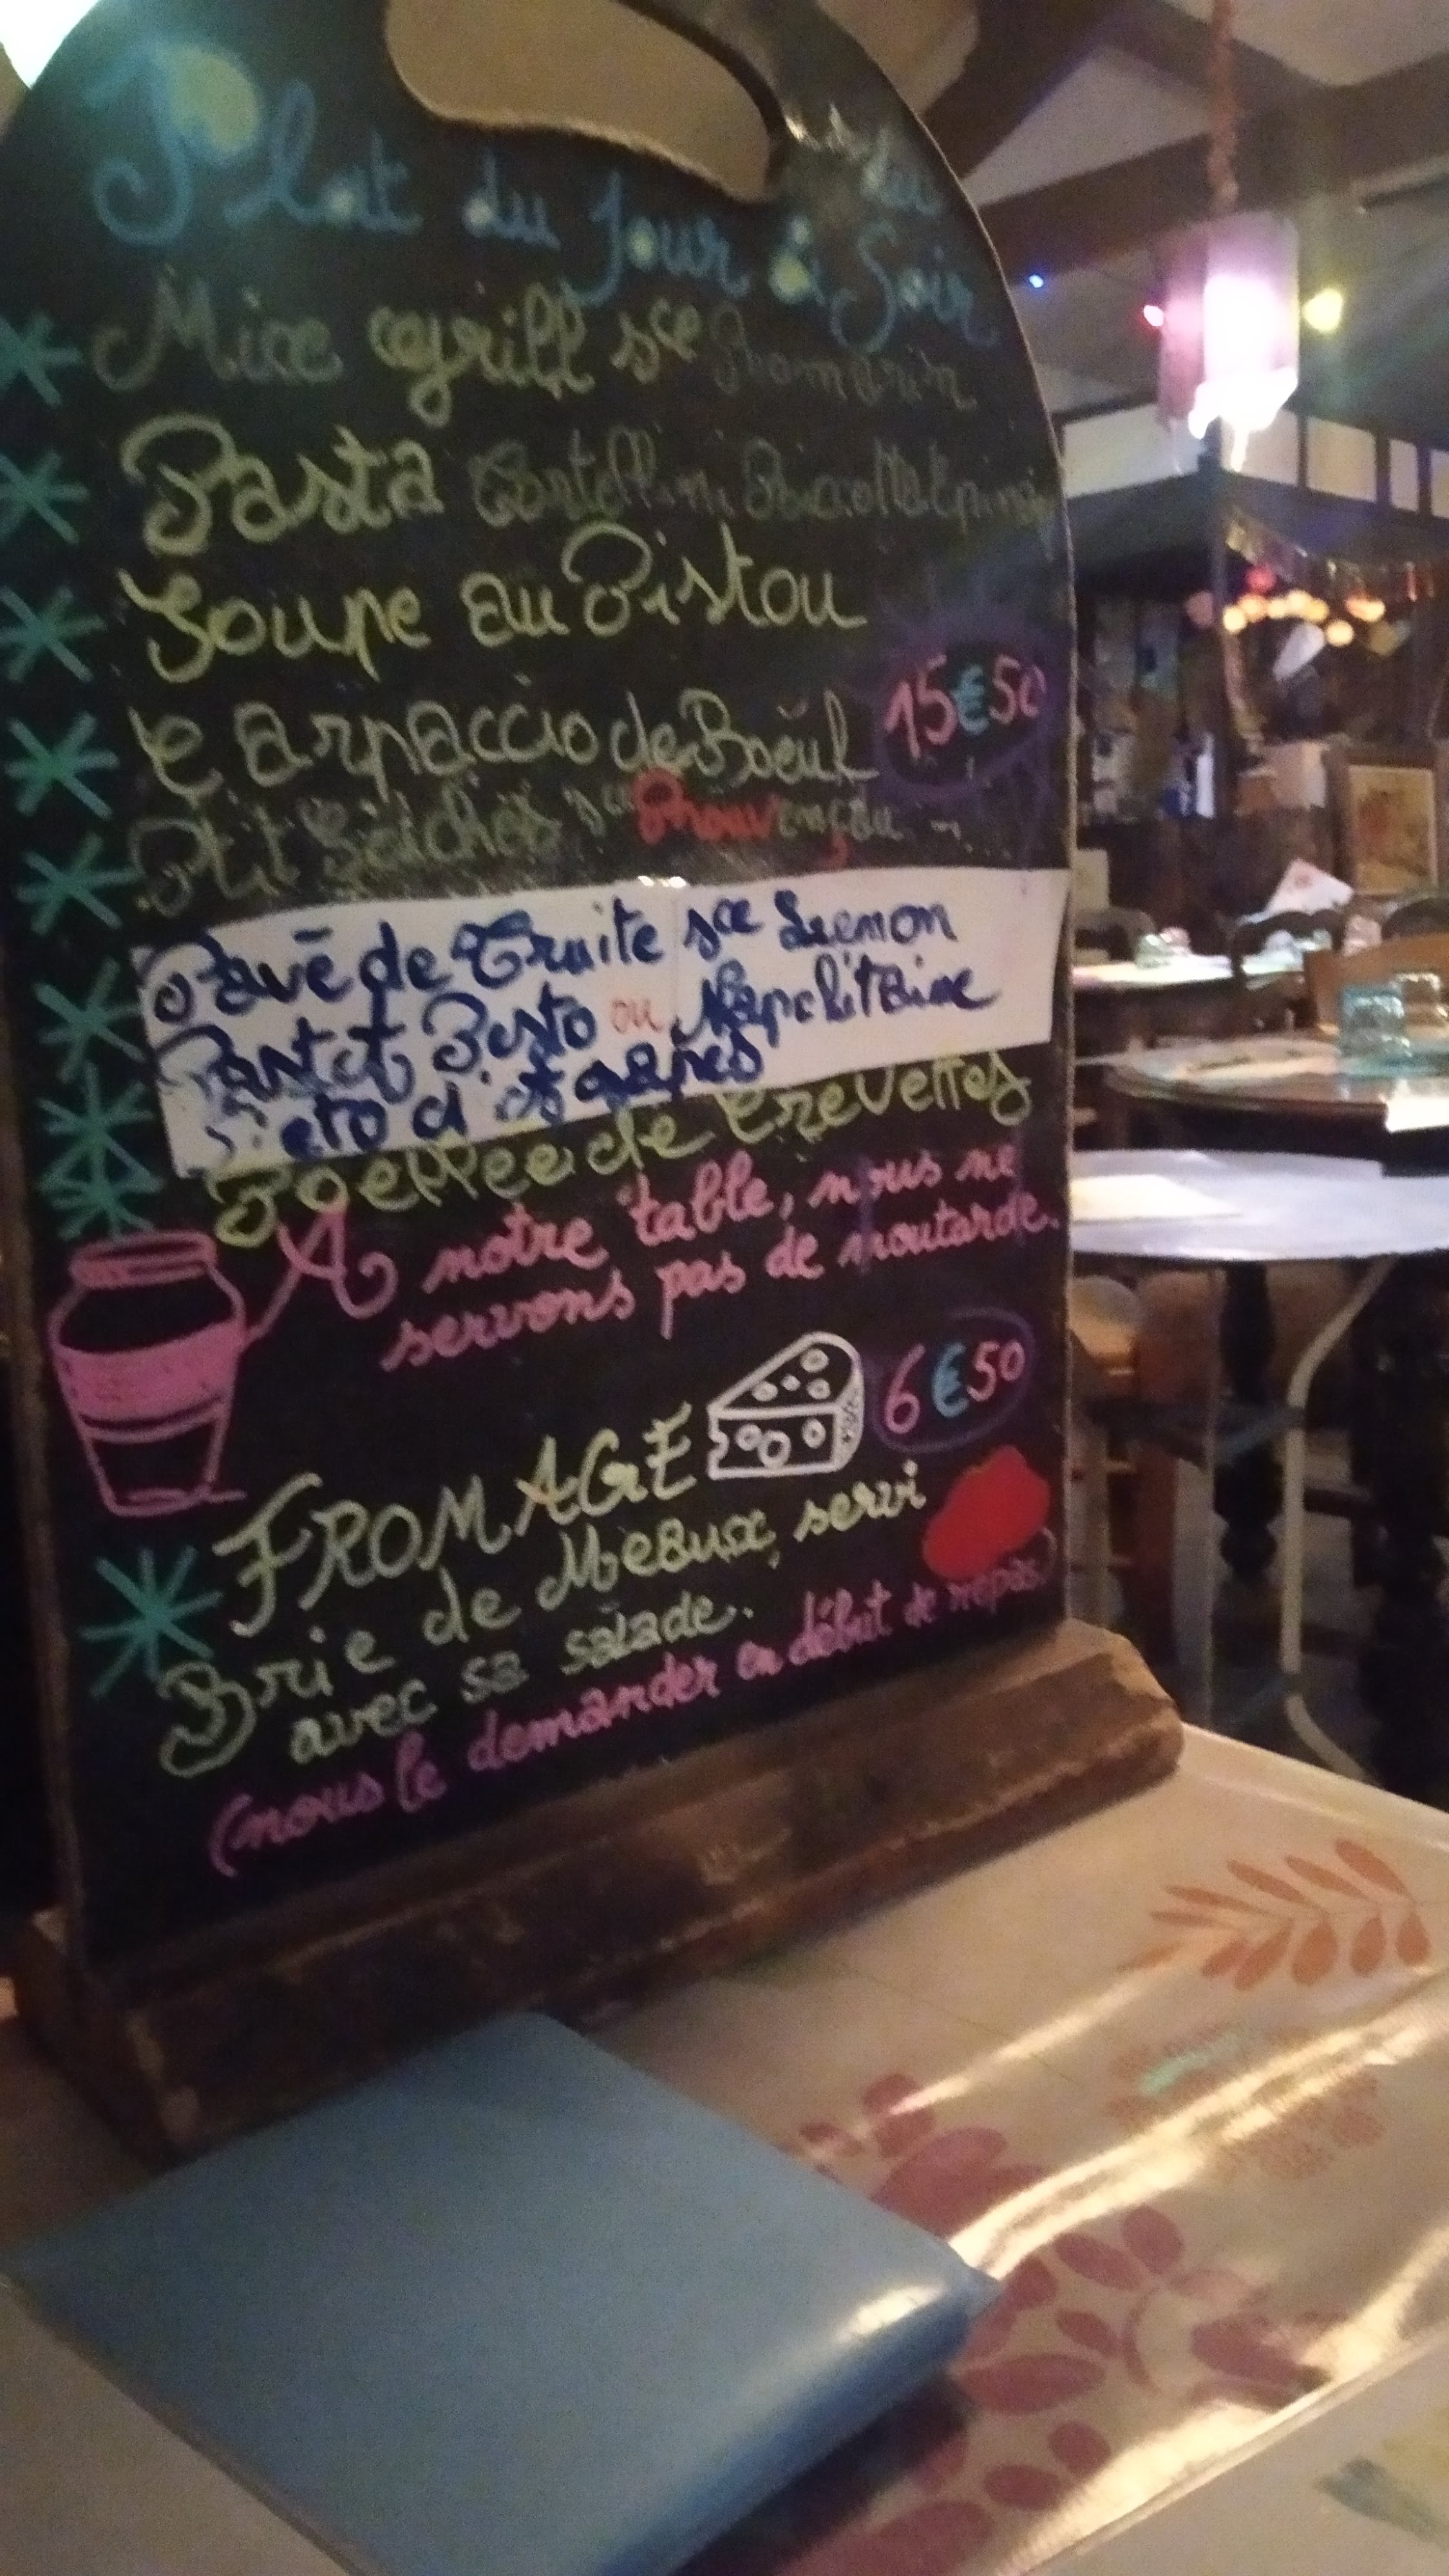 Plat du Jour & du Soir
Mixe grill sce Romarin
Pasta Tortellini Ricotta Epinar
Soupe au Pistou
Carpaccio de Boeuf 15€50
Ptit Seiches sce Prouvençau
Pavé de Truite sce Lemon
Pasta Pesto ou Napolitaine
d'Agneau
Poellée de Crevettes
A notre table, nous ne
servons pas de moutarde.
FROMAGE 6€50
Brie de Meaux, servi
avec sa salade.
(nous le demander en début de repas)